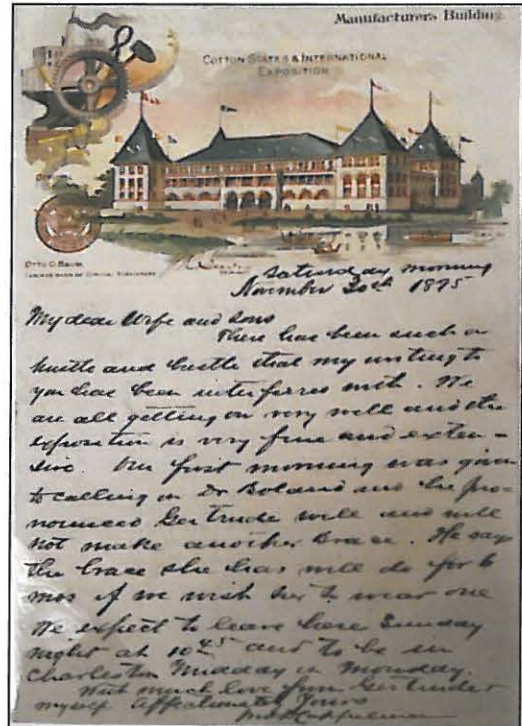 Manufacturers Building.
COTTON STATES & INTERNATIONAL
EXPOSITION
OTTO C. BAUM
Saturday morning
November 30th 1895
My dear Wife and sons
There has been such a
hustle and bustle that my writing to
you has been interferred with. We
are all getting on very well and the
exposition is very fine and exten-
sive. Our first morning was given
to calling on Dr Boland and he pro-
nounced Gertrude well and will
not make another Brace. He says
the brace she has will do for 6
mos if we wish her to wear one
We expect to leave here Sunday
night at 10 45 and to be in
Charleston Midday on Monday.
With much love from Gertrude &
myself Affectionately Yours